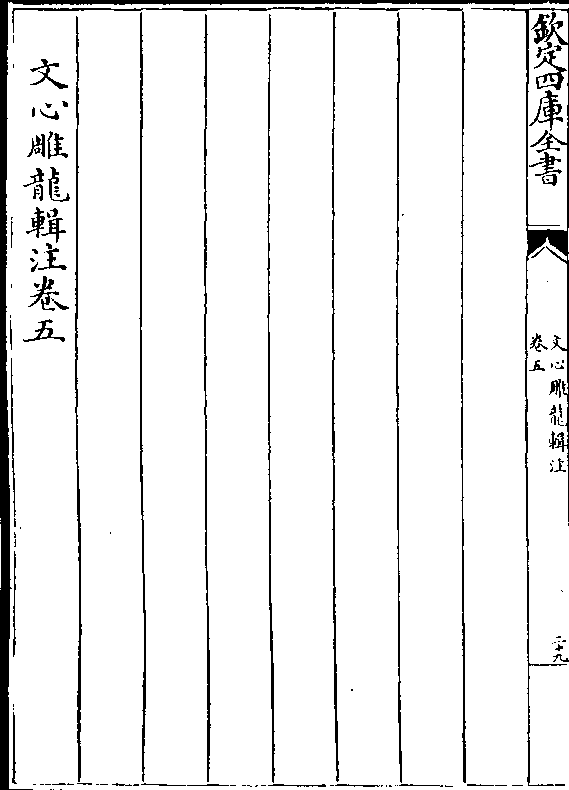 欽定四庫全書
文心雕龍輯注
卷五
二十九
文心雕龍輯注卷五